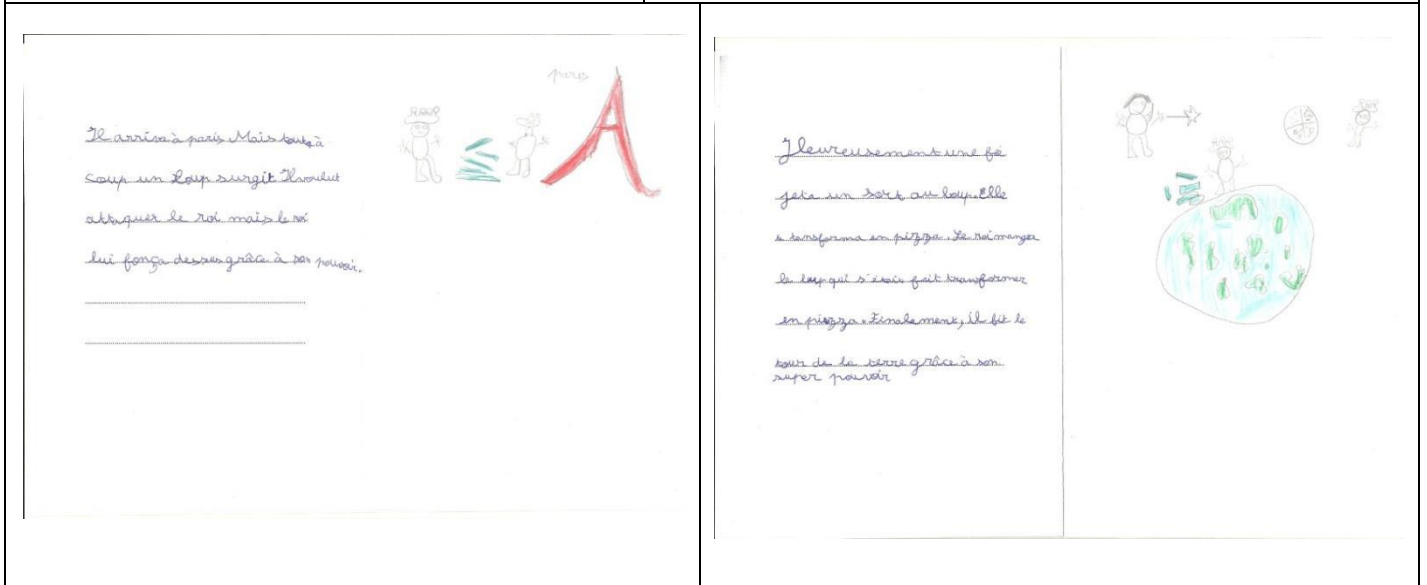 Il arriva à paris Mais tout à
coup un loup surgit Il voulut
attaquer le roi mais le roi
lui fonça dessus grâce à son pouvoir.
paris
Heureusement une fé
jeta un sort au loup. Elle
transforma en pizza. Le roi mangea
le loup qui s'était fait transformer
en pizza. Finalement, il fit le
tour de la terre grâce à son
super pouvoir